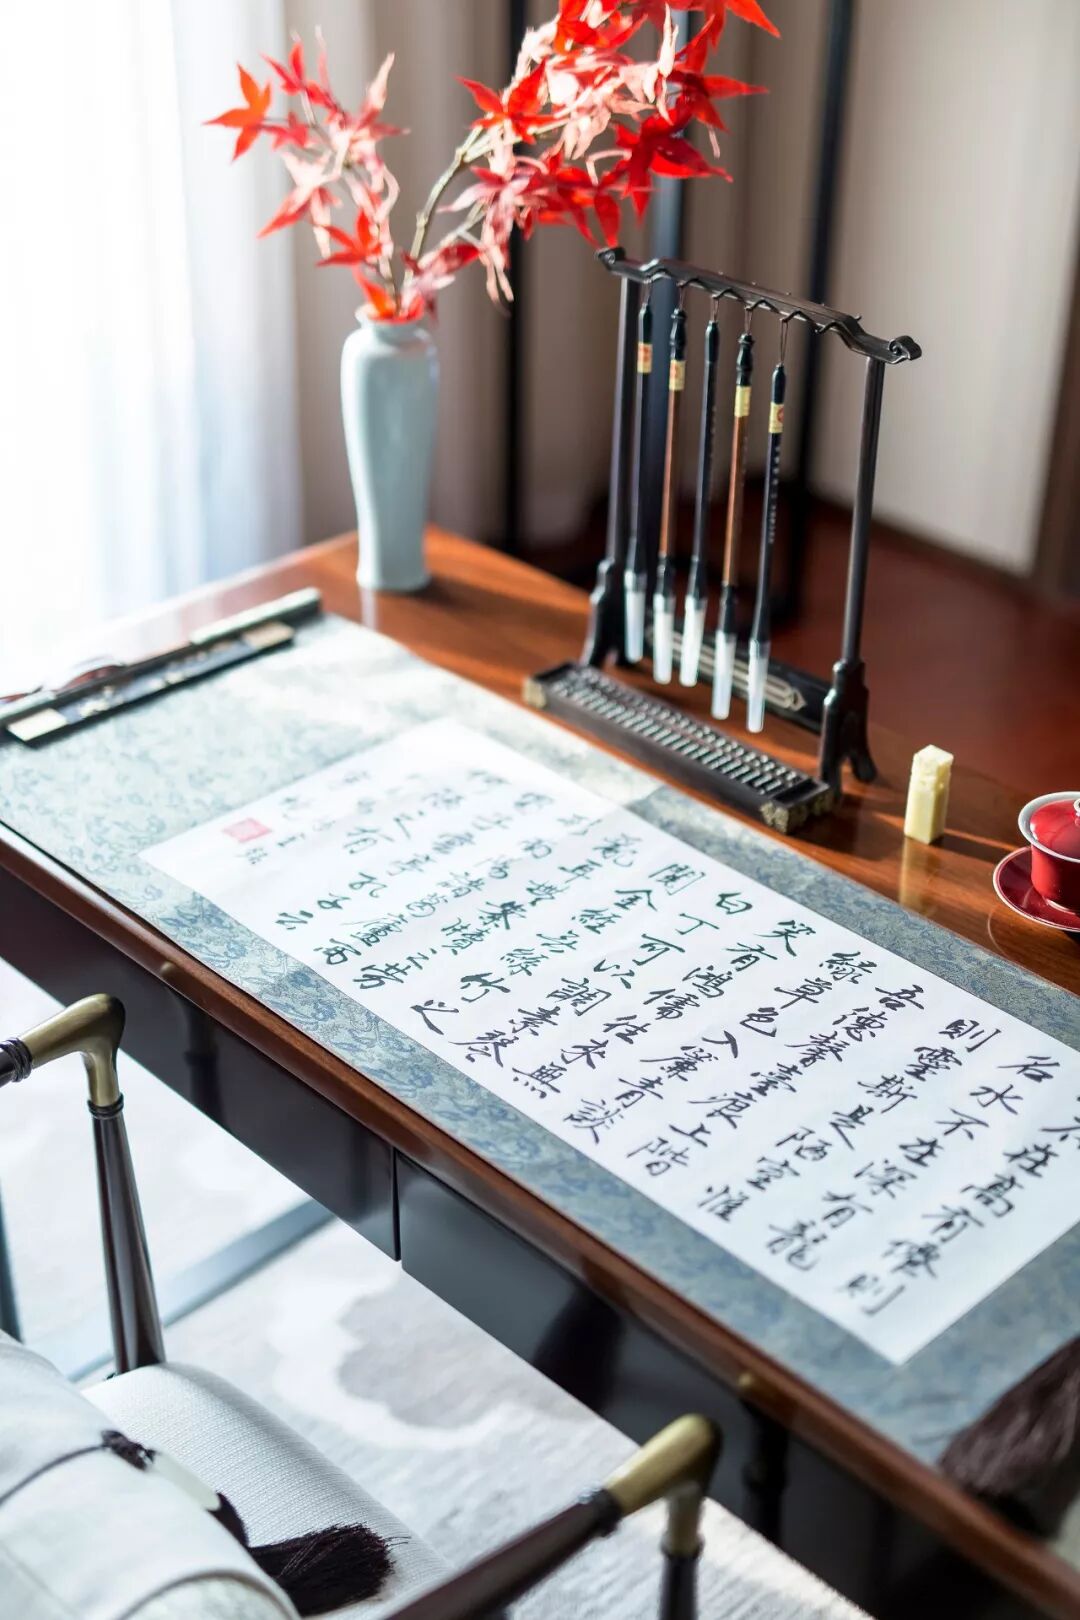 在高有僊則
名水不在深有龍
則靈斯是陋室惟
吾德馨苔痕上階
綠草色入簾青談
笑有鴻儒往來無
白丁可以調素琴
閱金經無絲竹之
亂耳無案牘之勞
形南陽諸葛廬西
蜀子雲亭孔子云
何陋之有